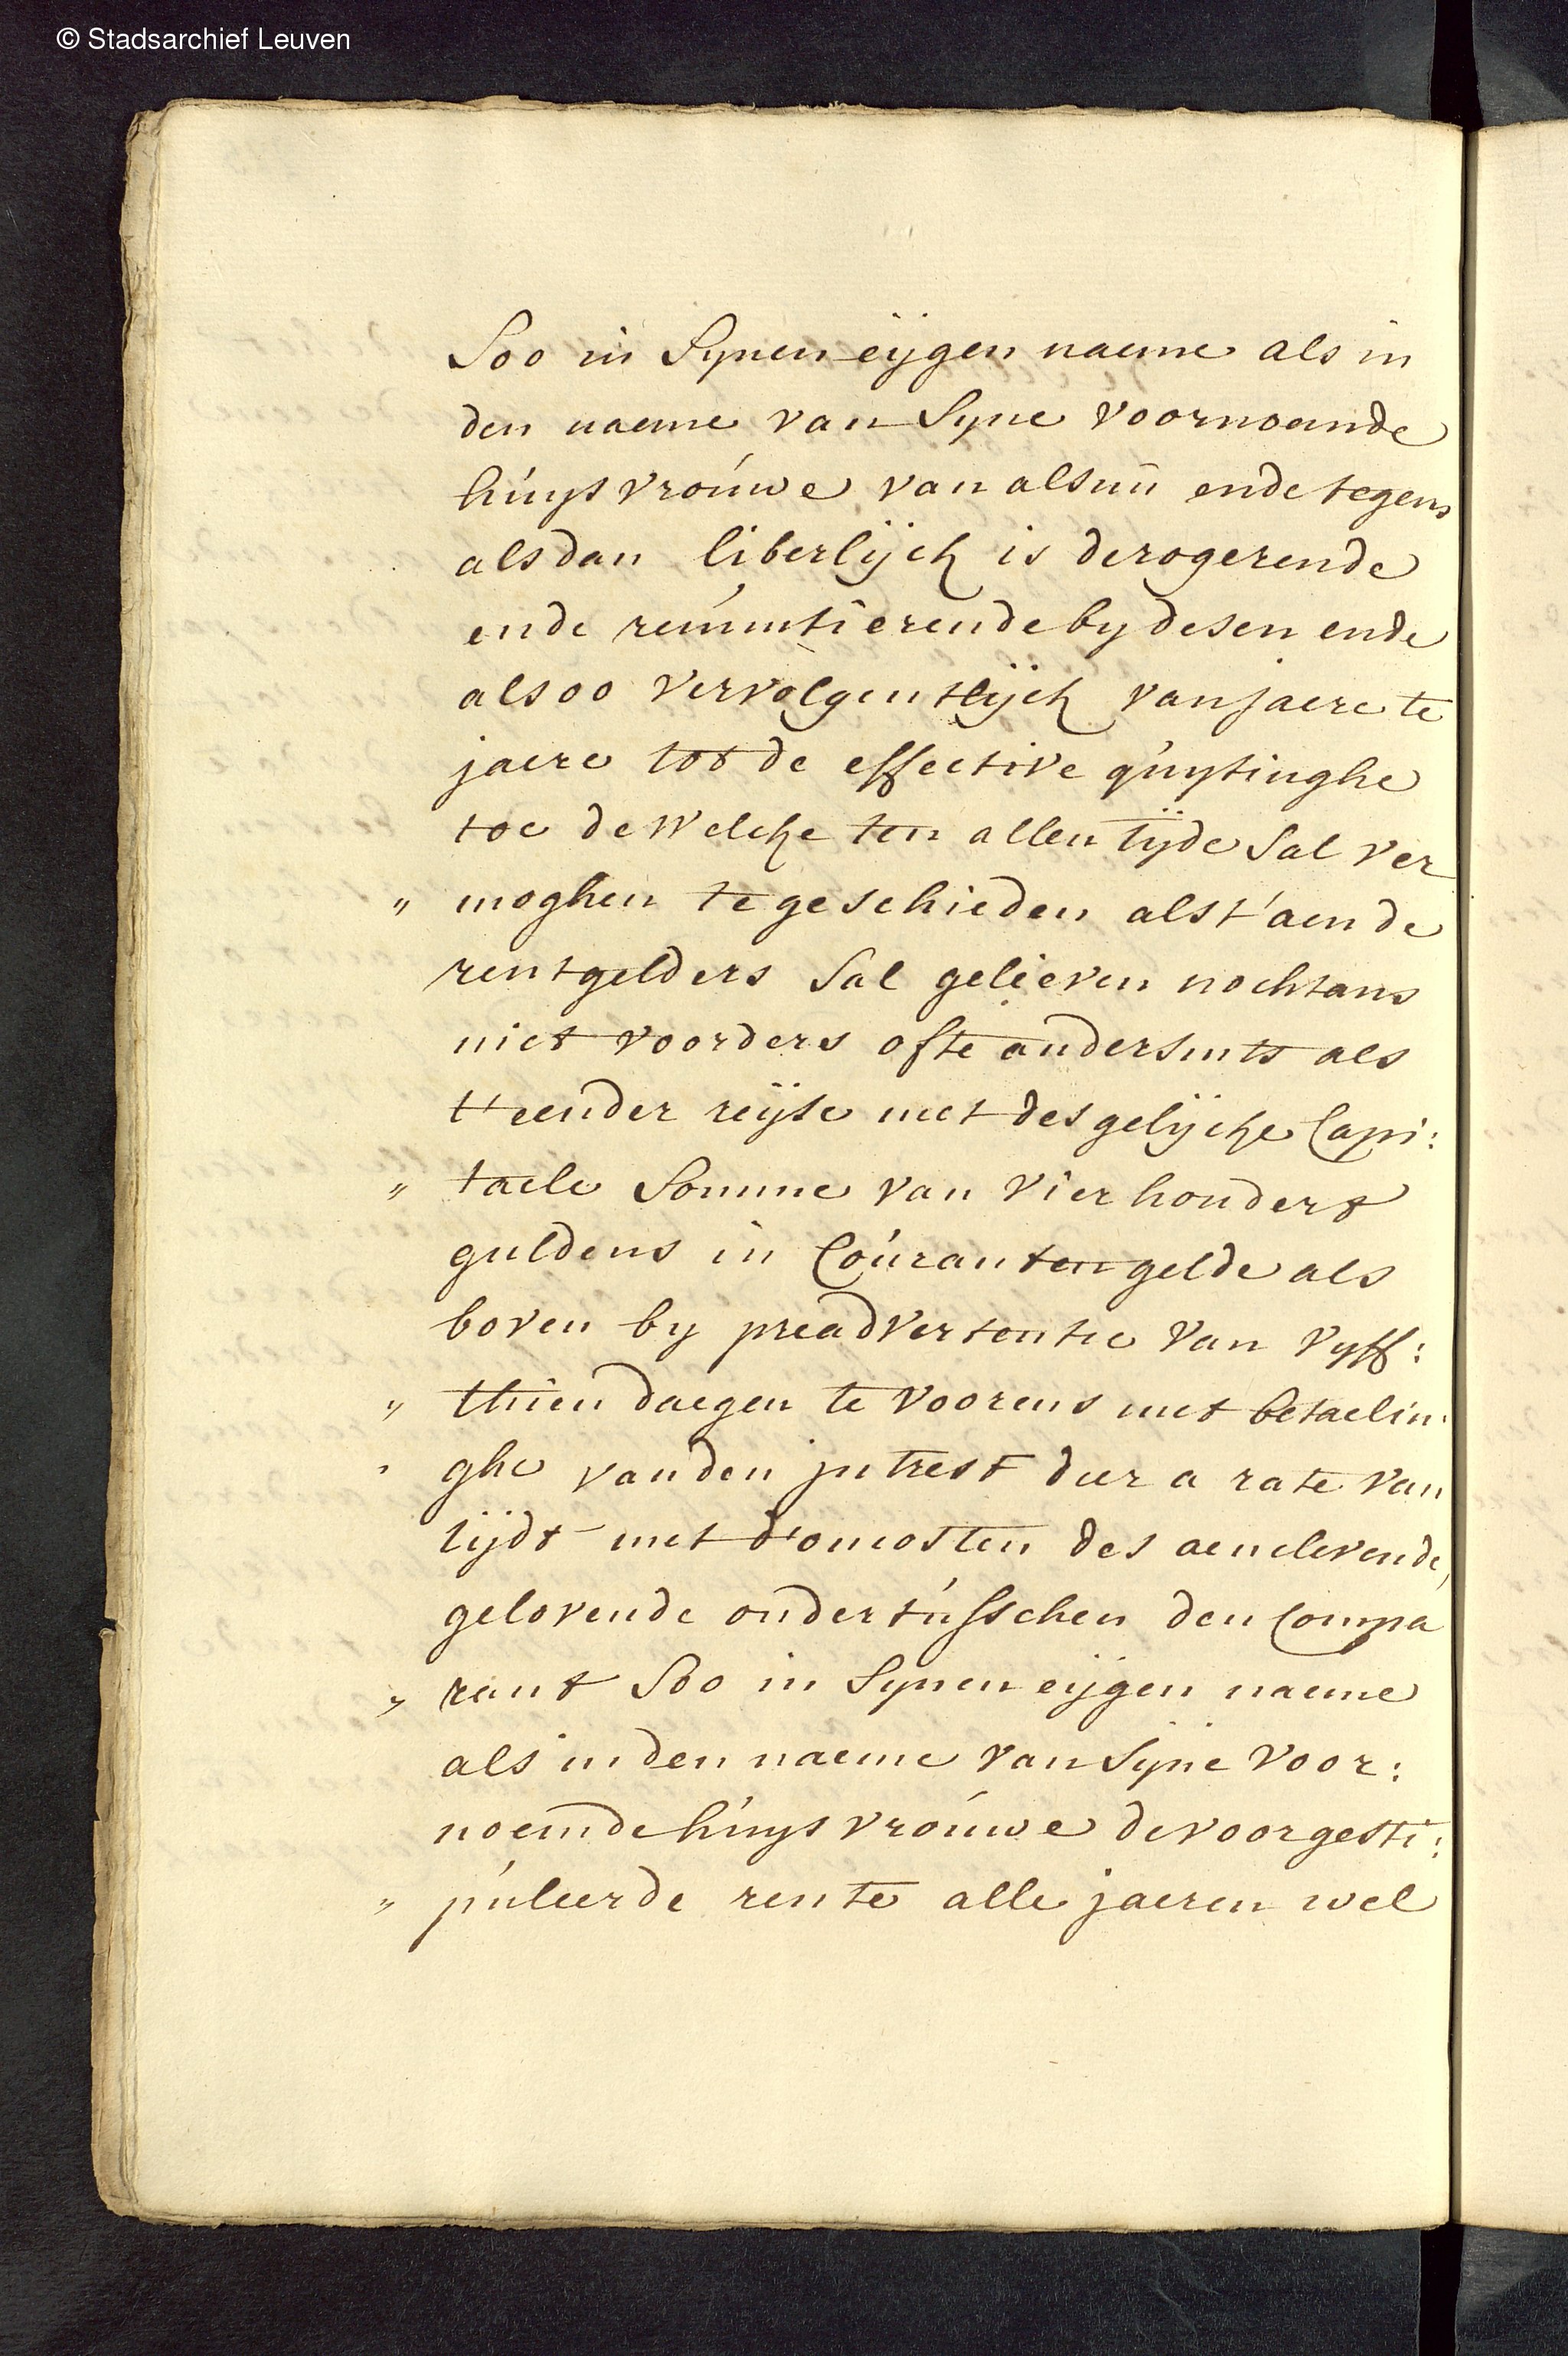 © Stadsarchief Leuven
Soo in Synen eijgen naeme als in
den naeme van Syne voornoemde
huijsvrouwe van alsnu ende tegens
alsdan liberlijck is derogerende
ende renuntierende by desen ende
alsoo vervolgentlijck van jaere te
jaere tot de effective quytinghe
toe de welcke ten allen tijde sal ver
„ moghen te geschieden als t'aen de
rentgelders sal gelieven nochtans
niet voorders ofte andersints als
t'eender reijse met desgelijcke Capi:
„ taele Somme van vier hondert
guldens in Couranten gelde als
boven by preadvertentie van vyff:
„ thien daegen te voorens met betaelin:
„ ghe van den jntrest dier a rate van
tijdt met d'oncosten des aenclevende,
gelovende ondertusschen den Compa
„ rant Soo in Synen eijgen naeme
als in den naeme van Syne voor:
noemde huijsvrouwe de voorgesti:
„ puleerde rente alle jaeren wel